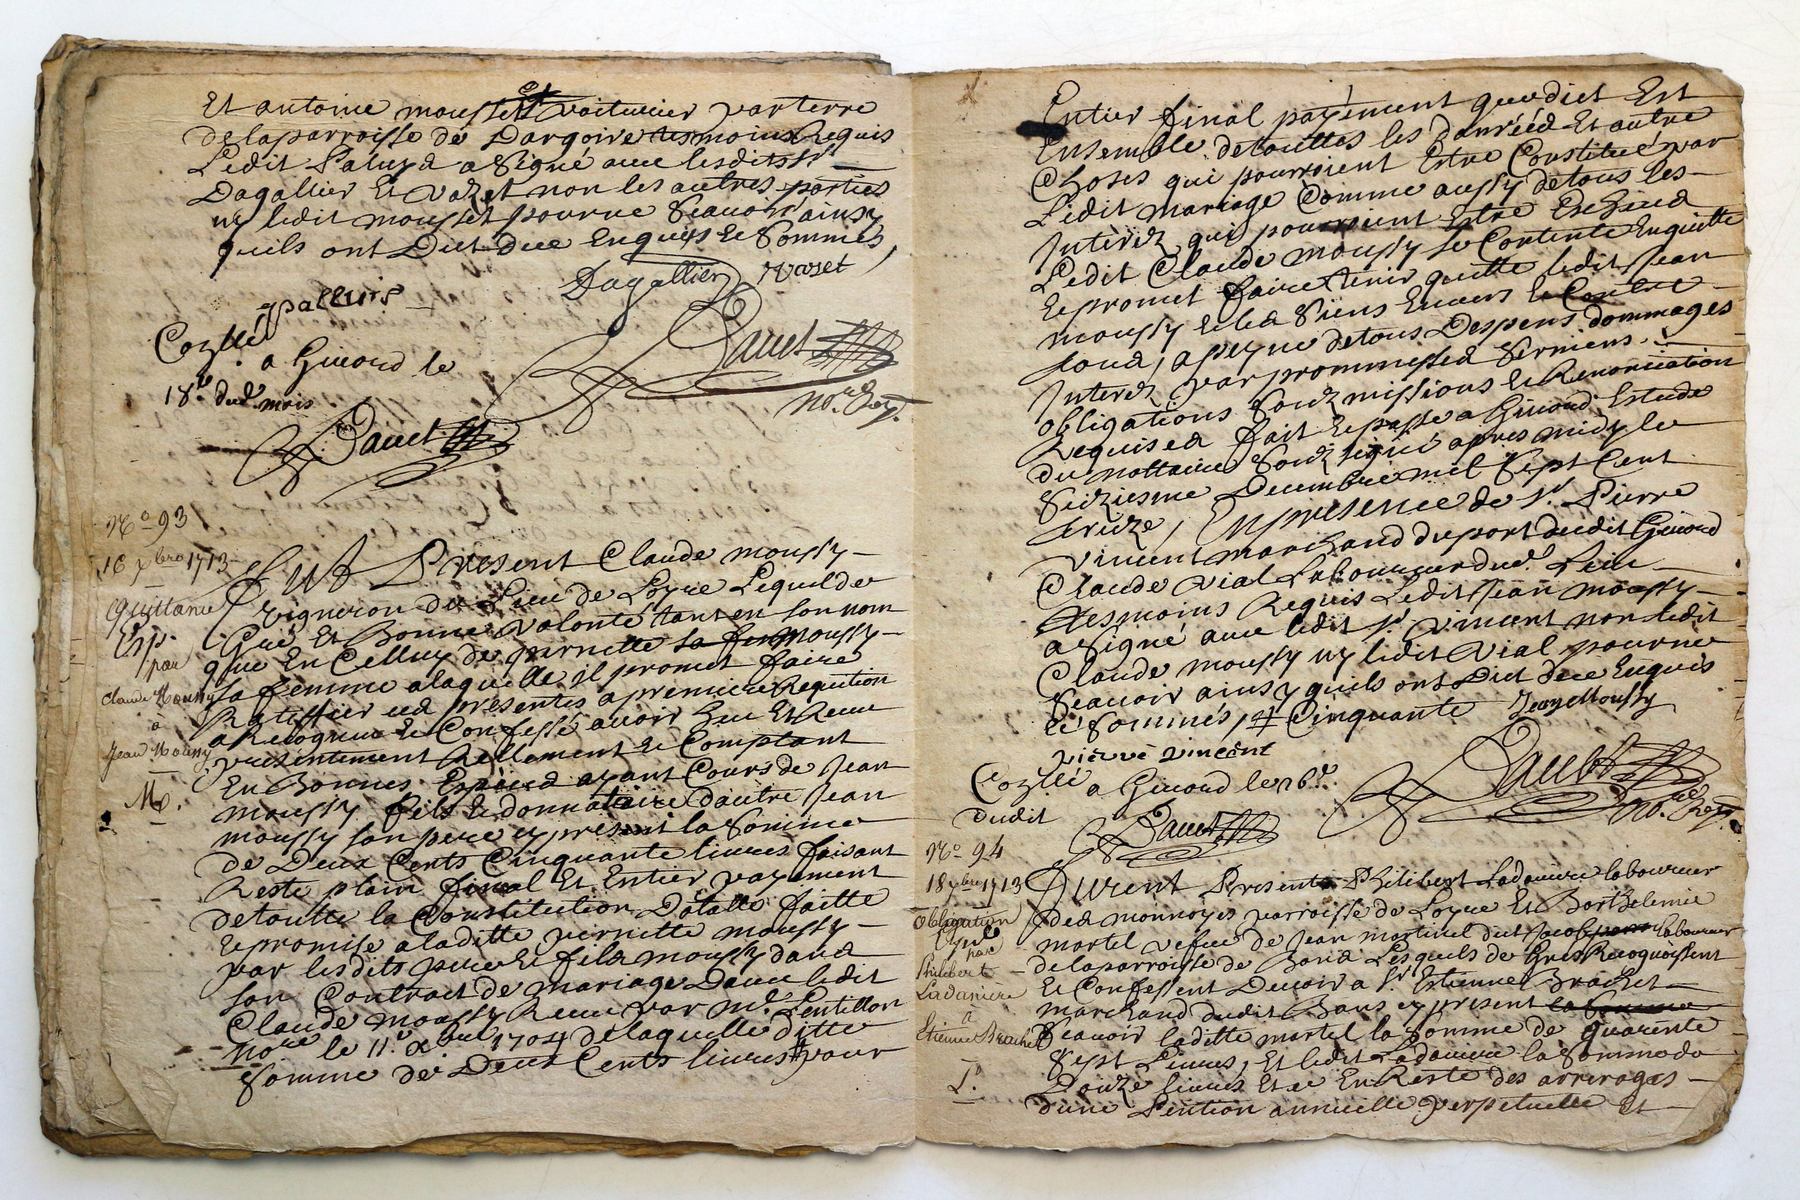 Et antoine mousset voiturier par terre
de la parroisse de Dargoire tesmoins Requis
Ledit a Signé avec lesdits Srs
Dagallier Et vazet non les autres parties
ny ledit mousset pour ne Scavoir ainsy
quils ont Dict deue Enquis & Sommés,
Dagallier Vazet
Cozllé
a Givord le
18e dud. mois
Nore Roy.
No 93
16 xbre 1713
quittance
Esp.
par
Claude Moussy
à
Jean Moussy
Fut Present Claude moussy
vigneron du Lieu de Loyre Lequel de
Gré Et Bonne volonté tant en son nom
que En Celluy de pernette sa fem moussy
Sa femme a laquelle il promet faire
Ratiffier ces presentes a premiere Requition
a Recognu & Confessé avoir heu Et Receu
presentement Rellement & Comptant
En Bonnes Especes ayant Cours de Jean
moussy fils & donnataire dautre Jean
moussy son pere cy present la Somme
de Deux Cents Cinquante livres faisant
Reste plain final Et Entier payement
de toutte la Constitution Dotalle faitte
& promise a laditte pernette moussy
par lesdits pere & fils moussy dans
son Contract de mariage Davec ledit
Claude moussy Receu par Me Pentillon
Nore le 11e 1704 de laquelle ditte
Somme de Deux Cents livres pour
Entier final payement que dict Est
Ensemble de touttes les danréés Et autre
Choses qui pourroient Estre Constitué par
Ledit mariage Comme aussy de tous les
Interéz qui pourroient Estre Escheus
Ledit Claude moussy se Contente En quitte
& promet faire tenir quitte ledit Jean
moussy & les Siens Envers & Contre
tous, a peyne de tous Despens dommages
Interéz par prommesses Sermens
obligations Soubzmissions & Renonciation
Requises fait & passé a Givord Estude
du nottaire Soubz signé apres midy le
Seiziesme Decembre mil Sept Cent
treize, En presence de Sr Pierre
vincent marchand du port dudit Givord
Claude vial Laboureur dud. Lieu
tesmoins Requis Ledit Jean moussy
a Signé avec ledit Sr vincent non ledit
Claude moussy ny ledit vial pour ne
Scavoir ainsy quils ont Dict deue Enquis
& Sommés, Cinquante Jean Moussy
pierre vincent
Cozllé a Givord le 26e
dudit
Nore Roy.
No 94
18 xbre 1713
Obligation
par
Philibert
Ladaviere
a
Etienne Brachet
Furent Presents Philibert Ladaviere laboureur
des monnoyes parroisse de Loyre Et Barthelemie
martel vefue de Jean martinel dit laboureur
de la parroisse de Lesquels de Gré Recognoissent
Et Confessent Devoir a Sr Estienne Brachet
marchand dudit cy present la Somme
Scavoir laditte martel la Somme de quarente
Sept Livres, Et ledit Ladaviere la Somme de
Douze livres Et ce En Reste des arrerages
dune Pention annuelle perpetuelle Et